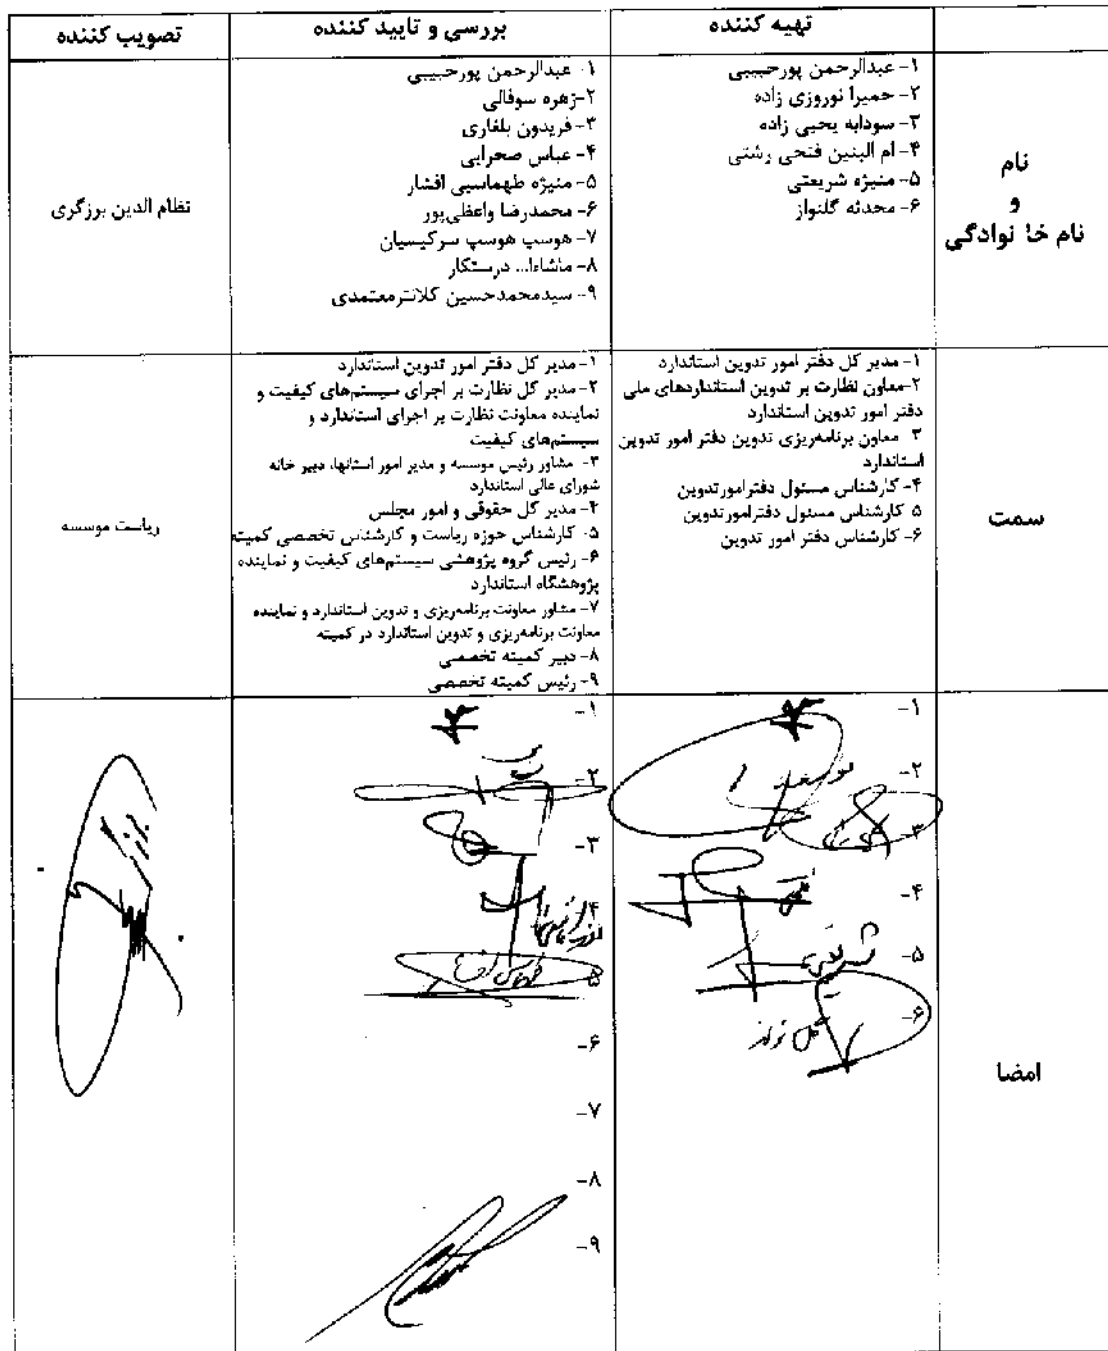 تهیه کننده
بررسی و تایید کننده
تصویب کننده
نام
و
نام خانوادگی
۱- عبدالرحمن پورحبیبی
۲- حمیرا نوروزی زاده
۳- سودابه یحیی زاده
۴- ام البنین فتحی رشتی
۵- منیژه شریعتی
۶- محدثه گلنواز
۱- عبدالرحمن پورحبیبی
۲-زهره سوفالی
۳- فریدون بلغاری
۴- عباس صحرایی
۵- منیژه طهماسبی افشار
۶- محمدرضا واعظی‌پور
۷- هوسپ هوسپ سرکیسیان
۸- ماشاءا... درستکار
۹- سیدمحمدحسین کلانترمعتمدی
نظام الدین برزگری
سمت
۱- مدیر کل دفتر امور تدوین استاندارد
۲-معاون نظارت بر تدوین استانداردهای ملی
دفتر امور تدوین استاندارد
۳- معاون برنامه‌ریزی تدوین دفتر امور تدوین
استاندارد
۴- کارشناس مسئول دفترامورتدوین
۵ کارشناس مسئول دفترامورتدوین
۶- کارشناس دفتر امور تدوین
۱-مدیر کل دفتر امور تدوین استاندارد
۲-مدیر کل نظارت بر اجرای سیستم‌های کیفیت و
نماینده معاونت نظارت بر اجرای استاندارد و
سیستم‌های کیفیت
۳- مشاور رئیس موسسه و مدیر امور استانها، دبیر خانه
شورای عالی استاندارد
۴- مدیر کل حقوقی و امور مجلس
۵- کارشناس حوزه ریاست و کارشناس تخصصی کمیته
۶- رئیس گروه پژوهشی سیستم‌های کیفیت و نماینده
پژوهشگاه استاندارد
۷- مشاور معاونت برنامه‌ریزی و تدوین استاندارد و نماینده
معاونت برنامه‌ریزی و تدوین استاندارد در کمیته
۸- دبیر کمیته تخصصی
۹- رئیس کمیته تخصصی
ریاست موسسه
امضا
۱-
۲-
۳-
۴-
۵-
۶-
گل نواز
۱-
۲-
۳-
۴
۵
۶-
۷-
۸-
۹-